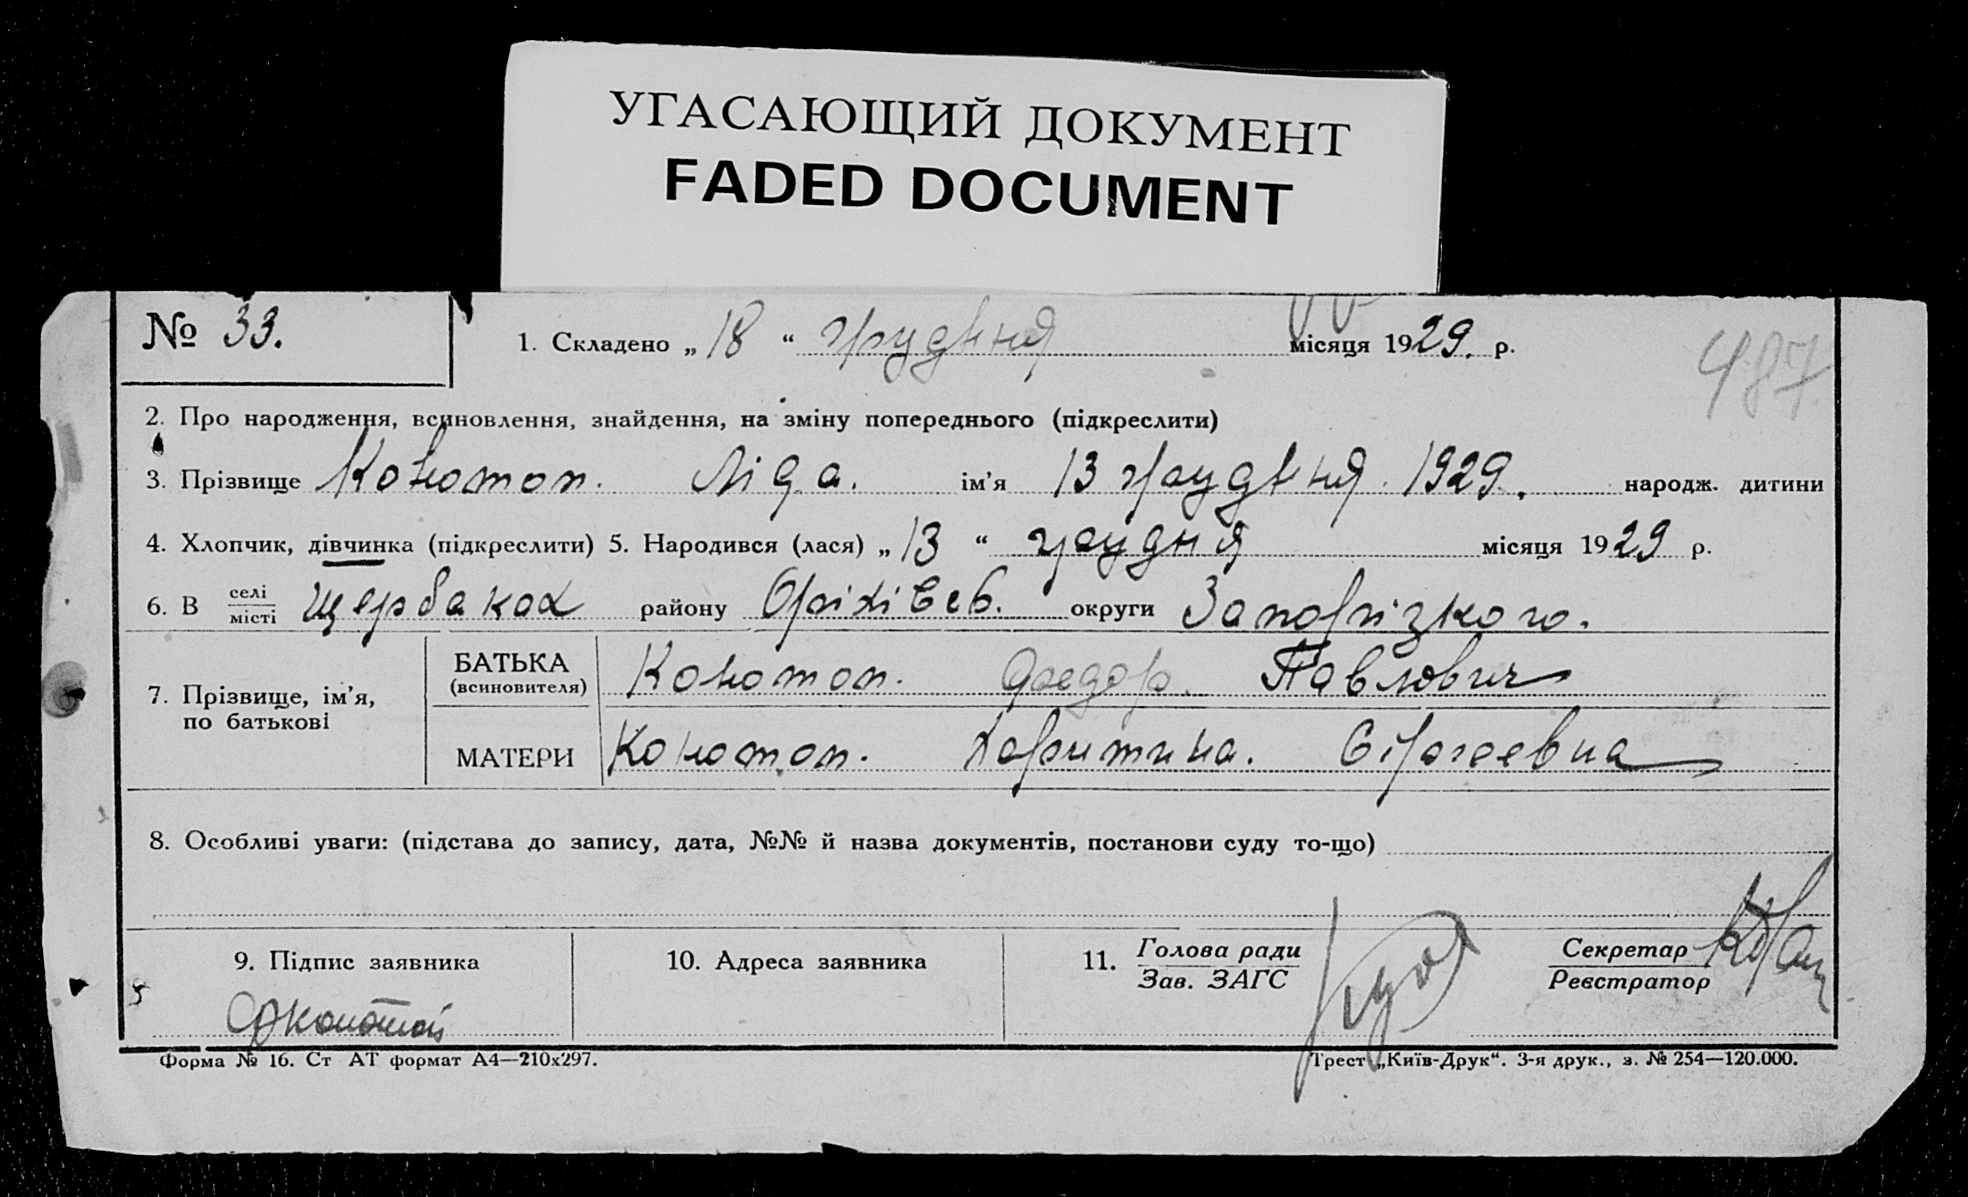 УГАСАЮЩИЙ ДОКУМЕНТ
FADED DOCUMENT
№ 33.
1. Складено „18“ грудня місяця 1929. р.
487
2. Про народження, всиновлення, знайдення, на зміну попереднього (підкреслити)
3. Прізвище Конотоп. Ліда. ім'я 13 грудня 1929. народж. дитини
4. Хлопчик, дівчинка (підкреслити) 5. Народився (лася) „13“ грудня місяця 1929 р.
6. В селі місті Щербаках району Оріхівсь. округи Запорізкого.
7. Прізвище, ім'я, по батькові
БАТЬКА (всиновителя) Конотоп. Федор. Павлович
МАТЕРИ Конотоп. Харитина. Сіргеевна
8. Особливі уваги: (підстава до запису, дата, №№ й назва документів, постанови суду то-що)
9. Підпис заявника
10. Адреса заявника
11. Голова ради Зав. ЗАГС
Секретар Реєстратор
Форма № 16. Ст АТ формат А4—210х297.
Трест „Київ-Друк“. 3-я друк., з. № 254—120.000.